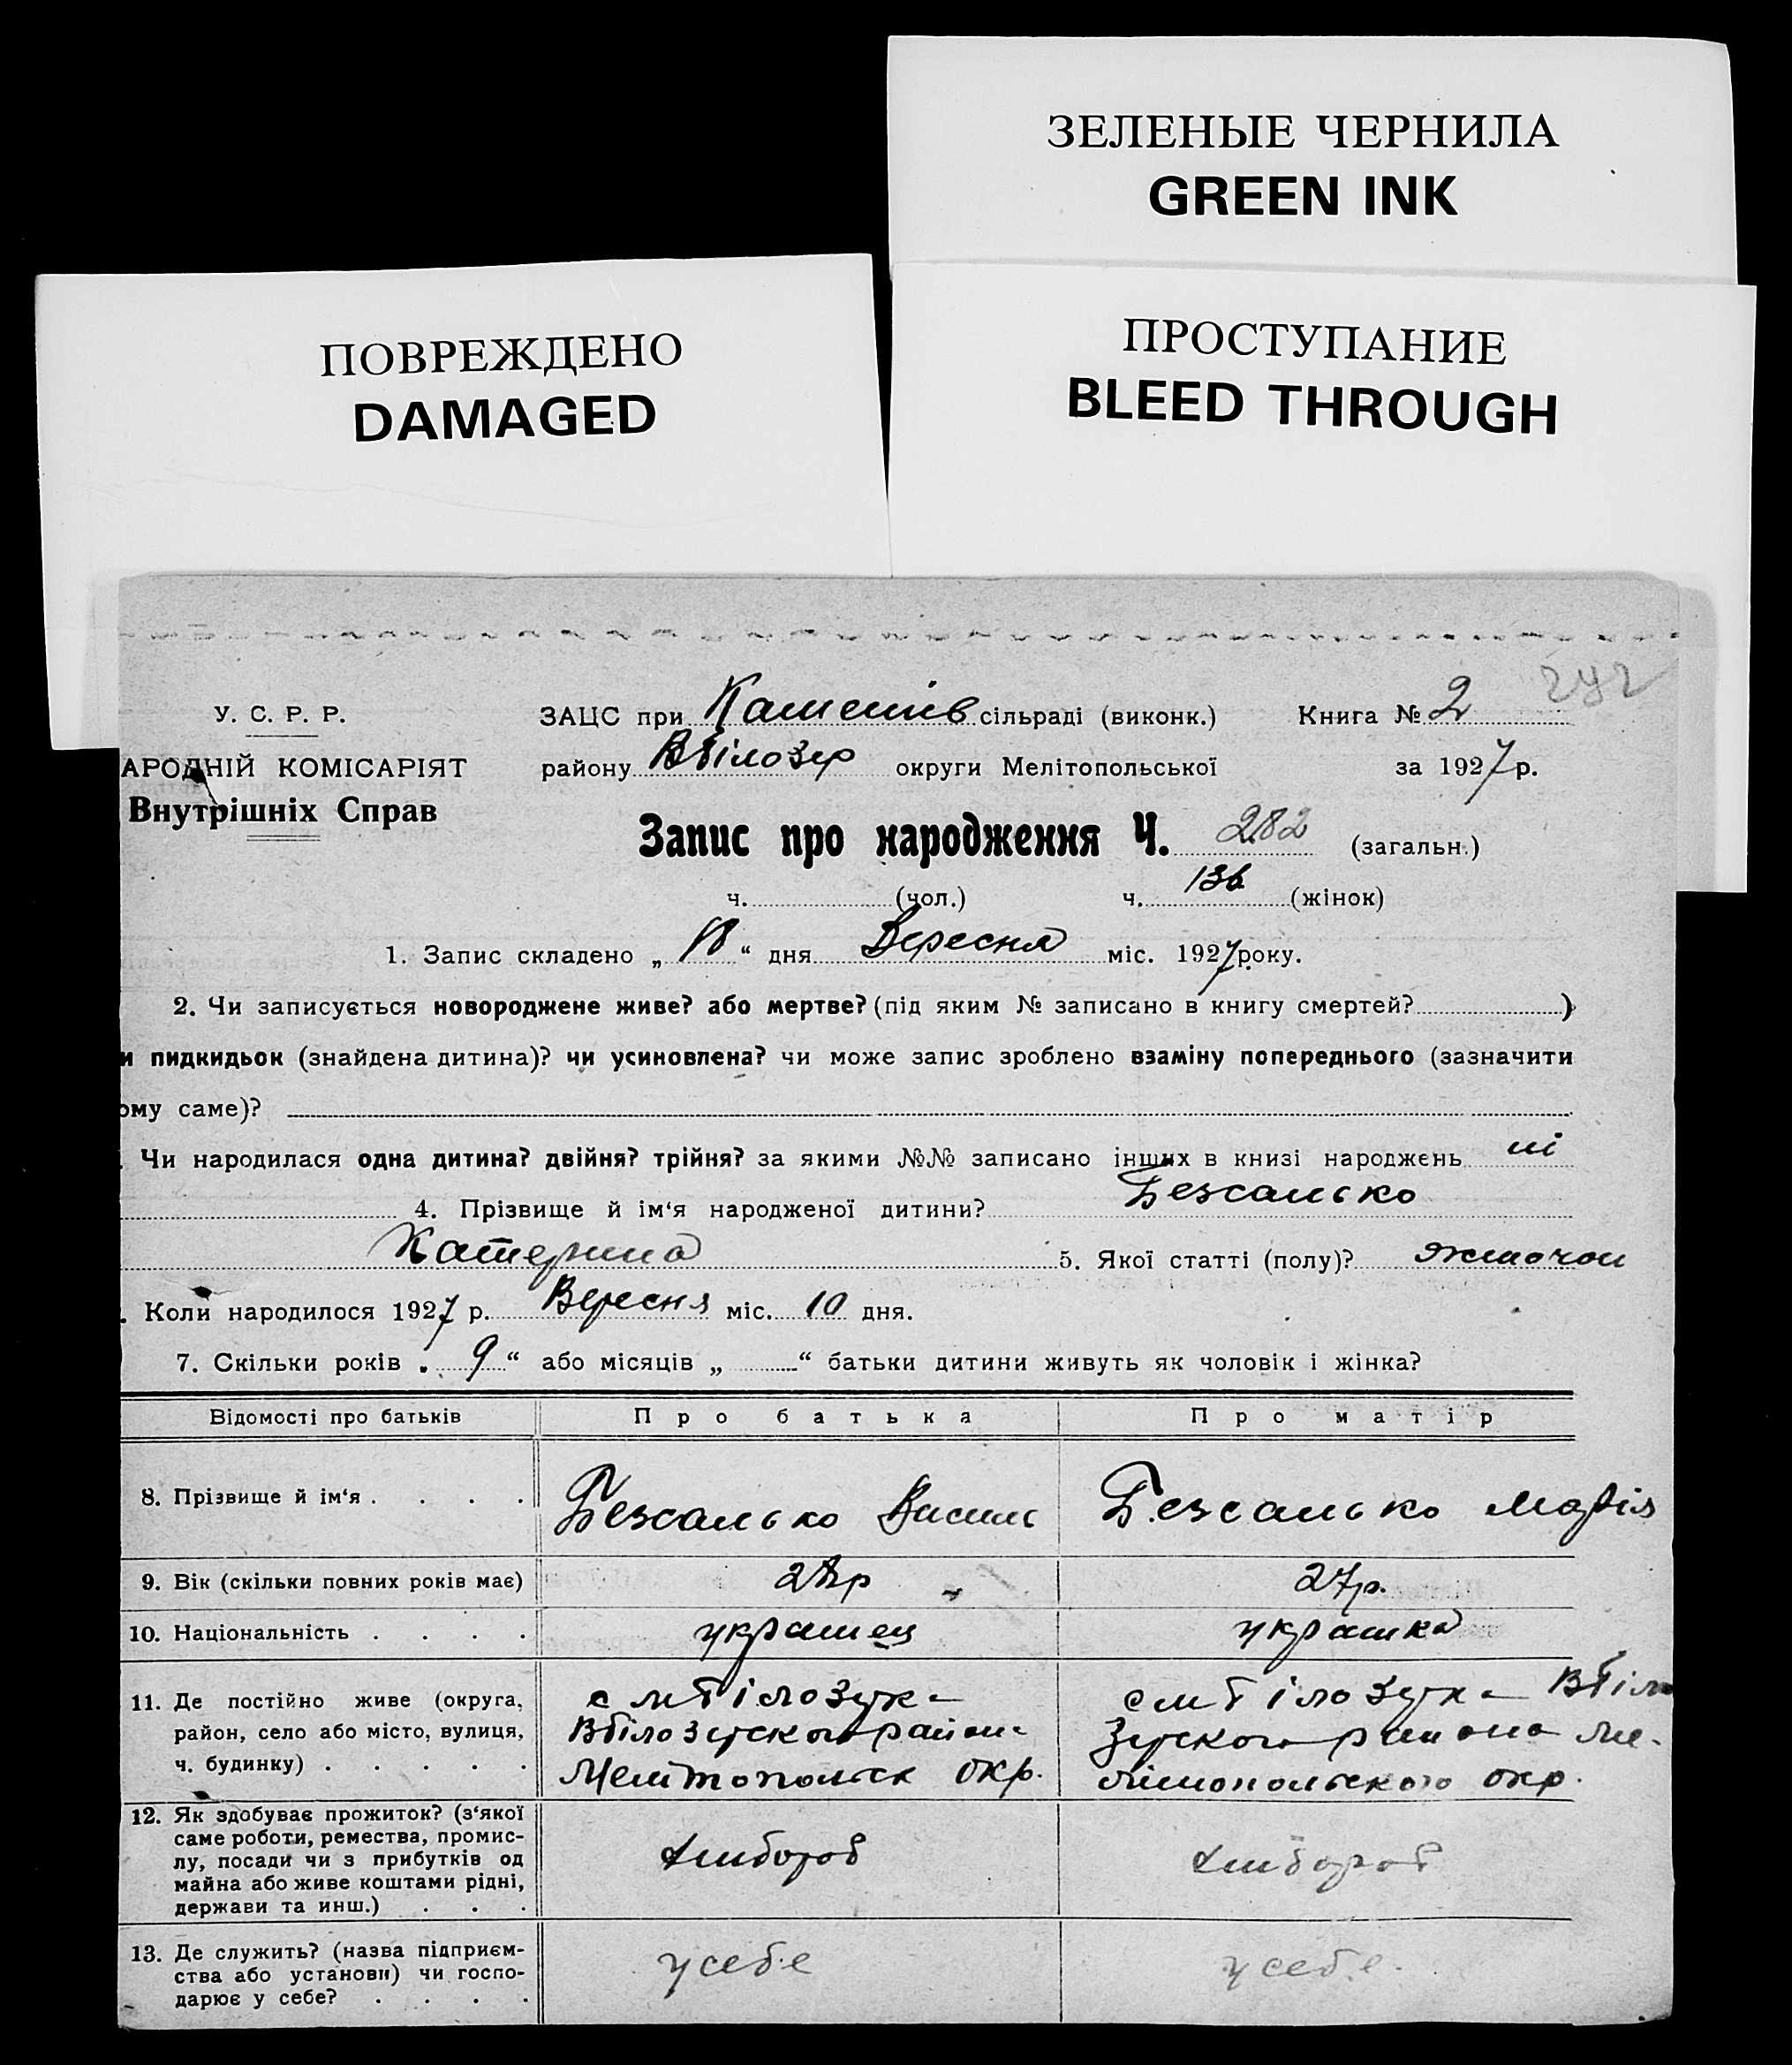 ЗЕЛЕНЫЕ ЧЕРНИЛА
GREEN INK
ПОВРЕЖДЕНО
DAMAGED
ПРОСТУПАНИЕ
BLEED THROUGH
242
У. С. Р. Р. ЗАЦС при сільраді (виконк.) Книга № 2
АРОДНІЙ КОМІСАРІЯТ району ВБілозер округи Мелітопольської за 1927 р.
Внутрішніх Справ
Запис про народження Ч. 282 (загальн.)
ч. (чол.) ч. 136 (жінок)
1. Запис складено „ 18 “ дня Вересня міс. 1927 року.
2. Чи записується новороджене живе? або мертве? (під яким № записано в книгу смертей? )
и пидкидьок (знайдена дитина)? чи усиновлена? чи може запис зроблено взаміну попереднього (зазначити
ому саме)?
Чи народилася одна дитина? двійня? трійня? за якими №№ записано інших в книзі народжень ні
4. Прізвище й ім‘я народженої дитини? Безсалько
Катерина 5. Якої статті (полу)? жіночои
. Коли народилося 1927 р. Вересня міс. 10 дня.
7. Скільки років „ 9 “ або місяців „ “ батьки дитини живуть як чоловік і жінка?
Відомості про батьків Про батька Про матір
8. Прізвище й ім‘я . . . . Безсалько Василь Безсалько Марія
9. Вік (скільки повних років має) 28р 27р.
10. Національність . . . . украінец украінка
11. Де постійно живе (округа,
район, село або місто, вулиця,
ч. будинку) . . . . .
с мБілозерка
ВБілозерского района
Мелітопольск окр.
с мБілозерка ВБіло
зерского района Ме-
літопольского окр.
12. Як здобуває прожиток? (з‘якої
саме роботи, ремества, промис-
лу, посади чи з прибутків од
майна або живе коштами рідні,
держави та инш.) . . .
хлібороб хлібороб
13. Де служить? (назва підприєм-
ства або установи) чи госпо-
дарює у себе? . . . .
у себе у себе.